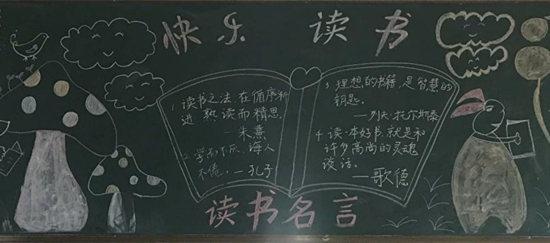 快乐 读书
1.读书之法,在循序渐
进,熟读而精思
—朱熹
2.学而不厌 诲人
不倦. —孔子
3.理想的书籍,是智慧的
钥匙.
—列夫·托尔斯泰
4.读一本好书,就是和
许多高尚的灵魂
谈话.
—歌德
读书名言